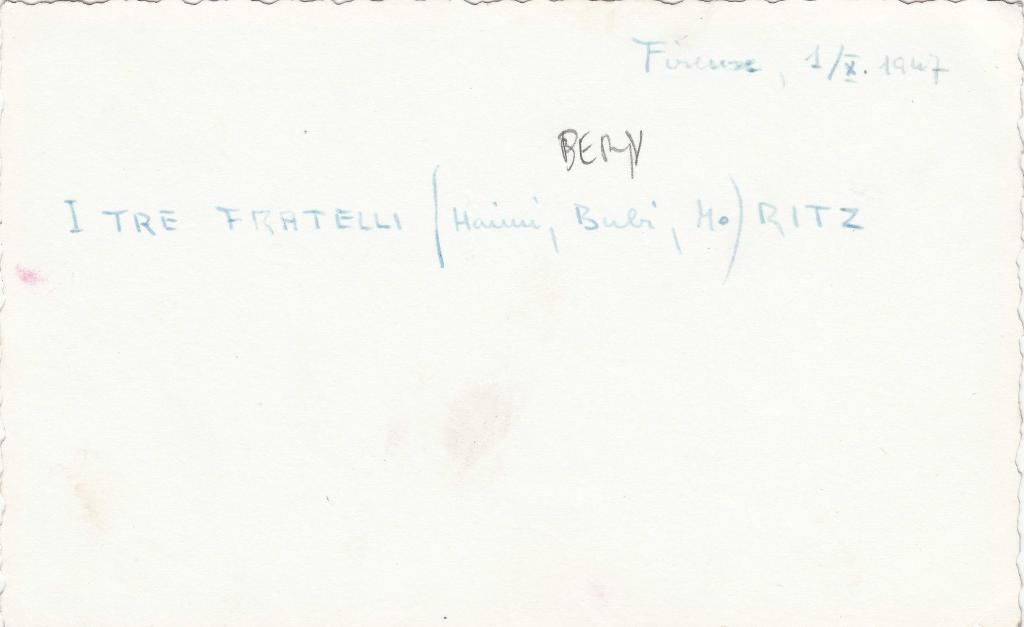 Firenze, 1/X. 1947
BERY
I TRE FRATELLI (Haimi, Bubi, Mo) RITZ